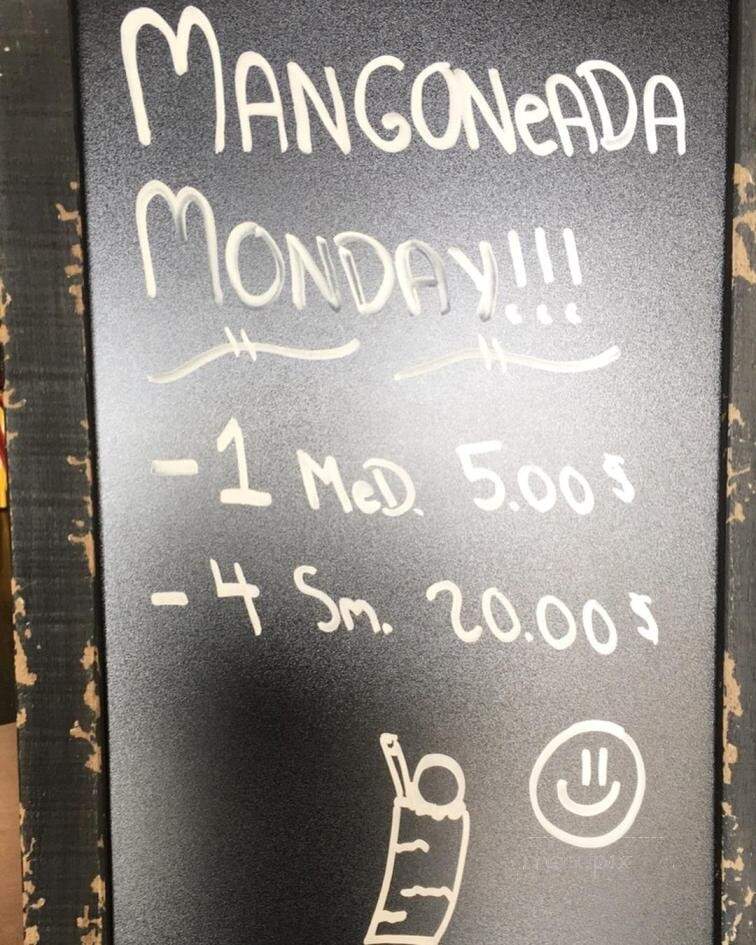 MANGONeADA
MONDAY!!!
- 1 MeD. 5.00$
- 4 Sm. 20.00$